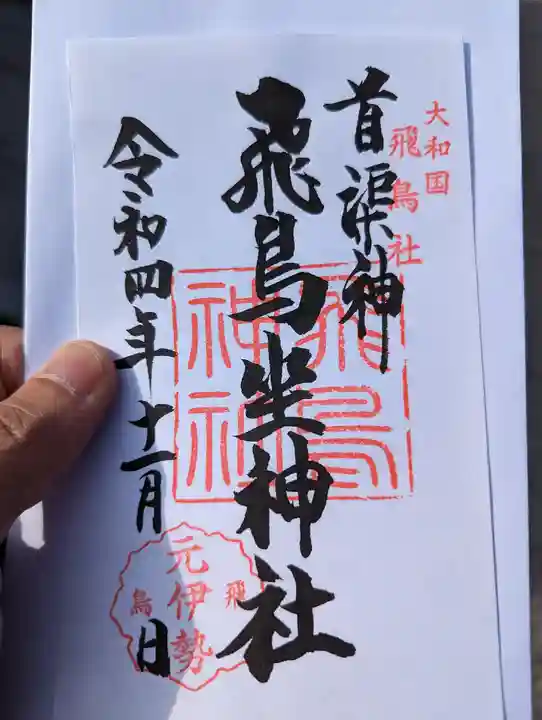 大和国
飛鳥社
首渠神
飛鳥坐神社
飛鳥
神社
令和四年十一月 日
元伊勢
飛鳥